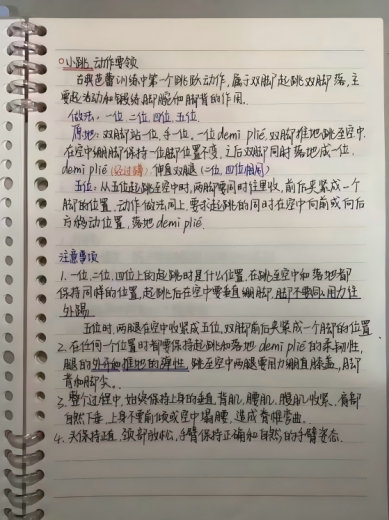 小跳动作要领
古典芭蕾训练中第一个跳跃动作,属于双脚起跳双脚落,主
要起活动和锻练脚腕和脚背的作用。
做法:一位、二位、四位、五位
原地:双脚站一位,手一位。一位demi plié,双脚推地跳至空中,
在空中绷脚保持一位脚位置不变,之后双脚同时落地成一位
demi plié(经过蹲),伸直双腿(二位、四位相同)
五位:从五位起跳至空中时,两脚要同时往里收,前后夹紧成一个
脚的位置,动作做法同上,要求起跳的同时在空中向前或向后
方移动位置,落地demi plié.
注意事项
1.一位、二位、四位上的起跳时是什么位置,在跳至空中和落地都
保持同样的位置,起跳后在空中要垂直绷脚,脚不要同心用力往
外踢。
五位时,两腿在空中收紧成五位,双脚前后夹紧成一个脚的位置
2.在任何一个位置时都要保持起跳和落地demi plié的柔韧性,
腿的外开和推地的弹性,跳至空中两腿要用力绷直膝盖、脚
背和脚尖。
3.整个过程中,始终保持上身的垂直,背肌、腰肌、腹肌收紧,肩部
自然下垂,上身不要前倾或空中塌腰,造成脊椎弯曲。
4.头保持正直,颈部放松,手臂保持正确和自然的手臂姿态.